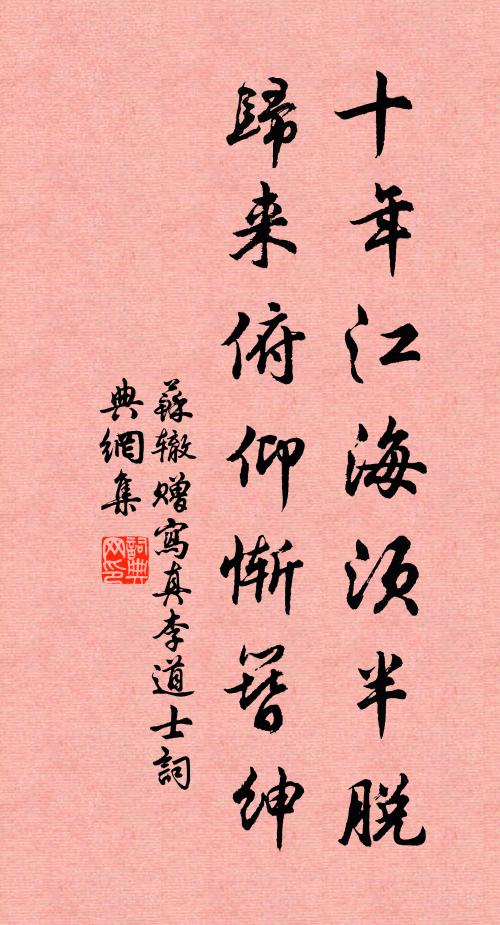 十年江海須半脫
歸来俯仰慚簪紳
蘇轍贈寫真李道士詞
典網集
詞典
网印